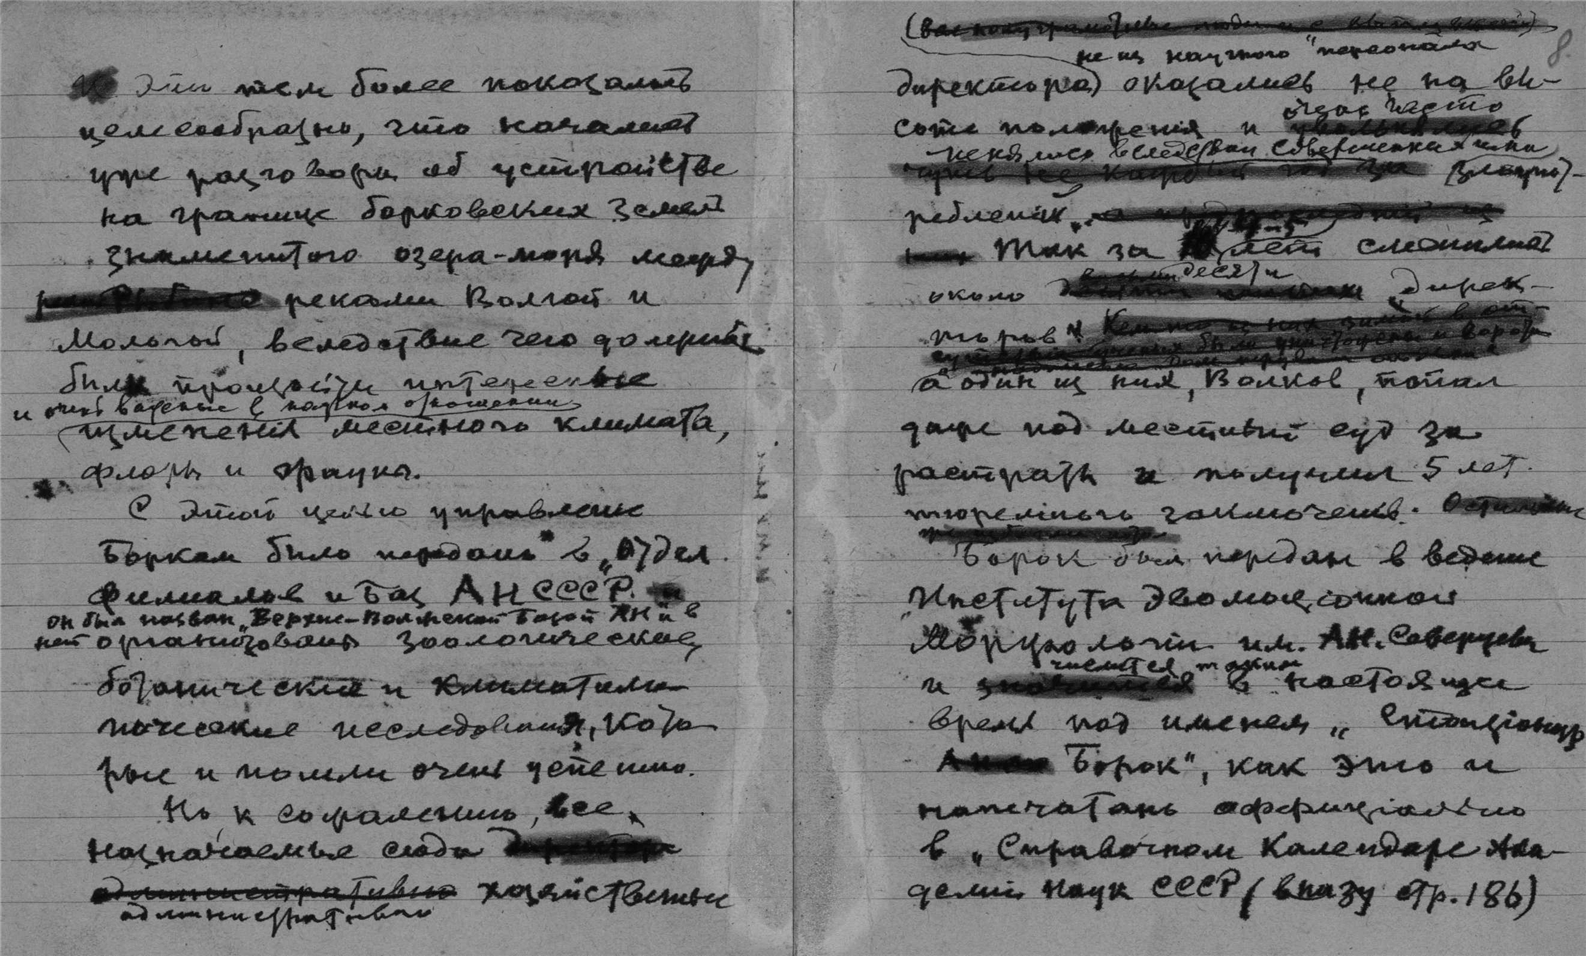 Это тем более показалось
целесообразно, что начались
уже разговоры об устройстве
на границе борковских земель
знаменитого озера-моря между
реками Волгой и
Мологой, вследствие чего должны
были произойти интересные
и очень важные в научном отношении
изменения местного климата,
флоры и фауны.
С этой целью управление
Борком было передано в „Отдел
филиалов и Баз АН СССР.
он был назван „Верхне-Волжской Базой АН и в
ней организованы зоологические,
ботанические и климатоло-
гические исследования, кото-
рые и пошли очень успешно.
Но, к сожалению, все,
назначаемые сюда
административно хозяйственные
административно
8.
не из научного персонала
директора) оказались не на вы-
соте положения и очень часто
менялись вследствии совершенных ими
злоупот-
реблений.
Так за лет сменилось
около десяти „дирек-
торов"
а один из них, Волков, попал
даже под местный суд за
растраты и получил 5 лет
тюремного заключенья.
Борок был передан в ведение
Института Эволюціонной
Морфологіи им. АН. Северцева
и числится таким в настоящее
время под именем „Стационар
Борок", как это и
напечатано оффиціально
в „Справочном Календаре Ака-
демии Наук СССР (внизу стр. 186)